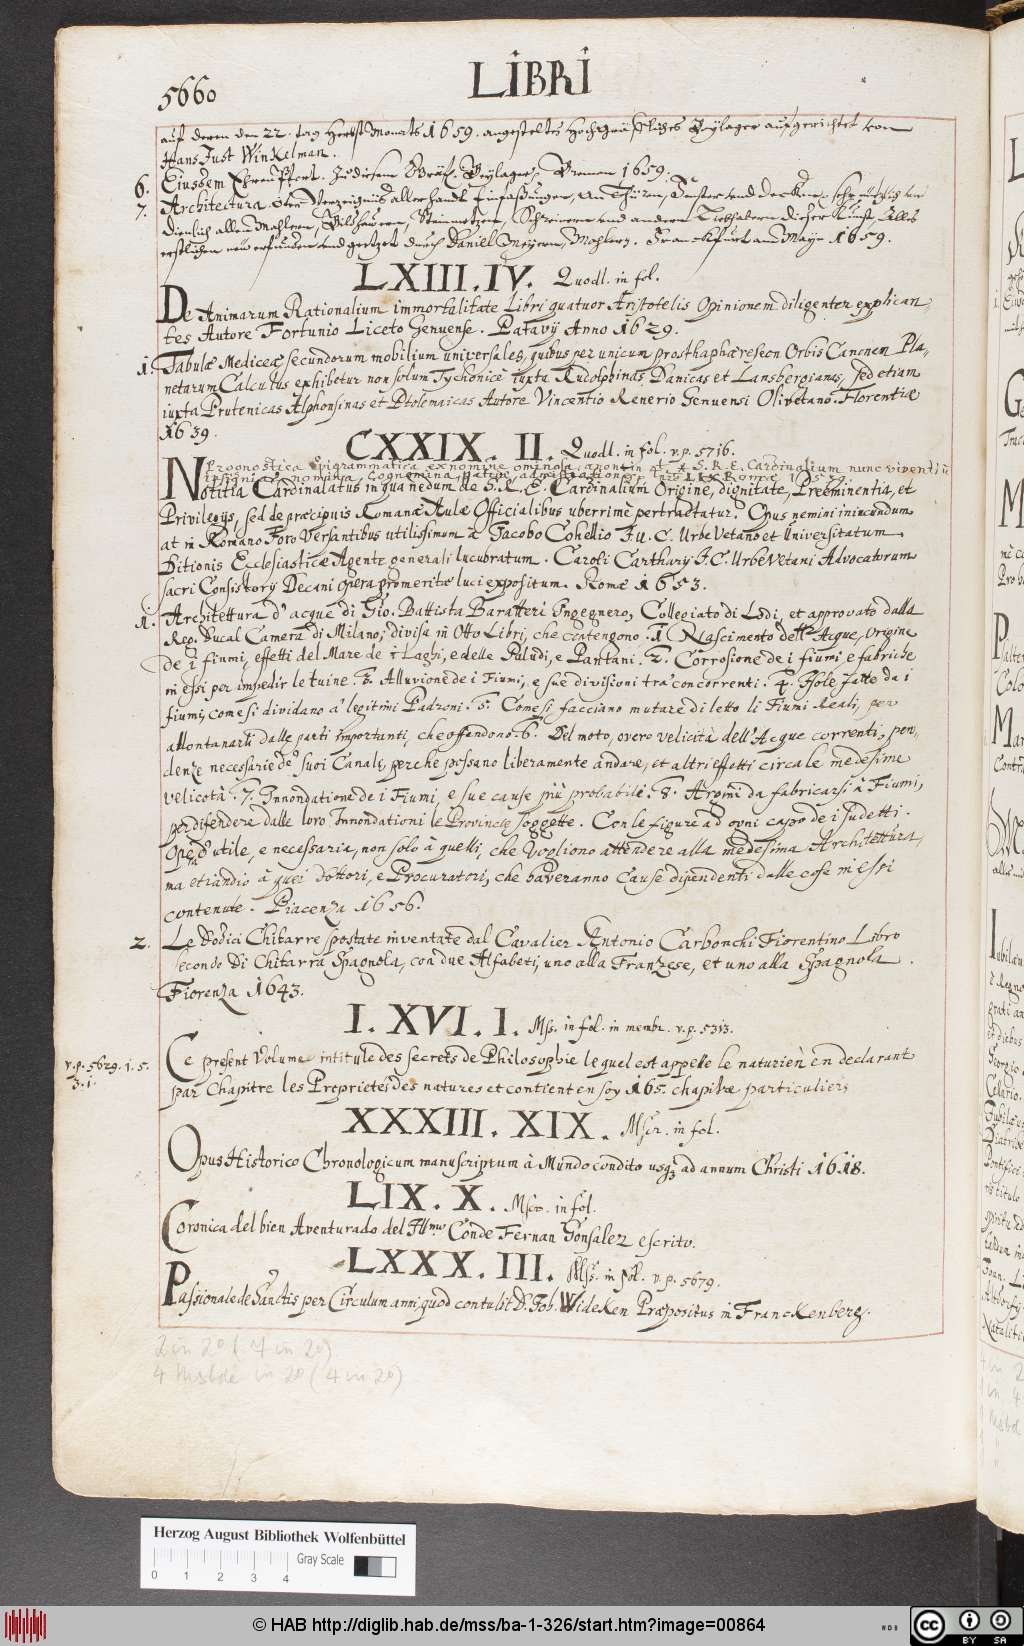 5660
LIBRI
auf deren den 22. tag Herbst Monats 1659. angestelten Hochgräfliches Beylager aufgerichtet von
Hans Just Winkelman.
6. Eiusdem Ehrenpfort. Zu diesem Beylager. Bremen 1659.
7. Architectura oder Verzeichniß allerhand Einfassungen, an Thüren, Fenster und Decken, sehr nützlich und
dienlich allen Mahlern, Bildhauern, Steinmetzen, Schreinern und andern Liebhabern dieser Kunst, Alles
erstlichen new erfunden und geetzet durch Daniel Meyern, Mahlern. Franckfurt am Mayn 1659.
LXIII. IV. Quodl. in fol.
De Animarum Rationalium immortalitate Libri quatuor Aristotelis Opinionem diligenter explican
tes Autore Fortunio Liceto Genuense. Patavij Anno 1629.
1. Tabulæ Mediceæ secundorum mobilium universales, quibus per unicum prosthaphæreseon Orbis Canonem Pla-
netarum Calculus exhibetur non solum Tychonicè iuxta Rudolphinas Danicas et Lansbergianas, sed etiam
iuxta Prutenicas Alphonsinas et Ptolemaicas Autore Vincentio Renerio Genuensi Olivetano. Florentiæ
1639.
CXXIX. II. Quodl. in fol. v.p. 5716.
Prognostica Epigrammatica ex nomine S. R. E. Cardinalium nunc viventiũ
insignia, nomina, cognomina, patria, Romæ
Notitia Cardinalatus in qua nedum de S. R. E. Cardinalium Origine, dignitate, Preëminentia, et
Privilegijs, sed de præcipuis Romanæ Aulæ Officialibus uberrimè pertractatur. Opus nemini iniucundum
at in Romano Foro Versantibus utilissimum à Jacobo Cohellio J. U. C. Urbe Vetano et Universitatum
Ditionis Ecclesiasticæ Agente generali lucubratum. Caroli Carthary J. C. Urbevetani Advocatorum
sacri Consistorij Decani opera promeritæ luci expositum. Romæ 1653.
1. Architettura d'acque di Gio. Battista Baratteri Ingegnero, Collegiato di Lodi, et approvato dalla
Reg. Ducal Camera di Milano; divisa in Otto Libri, che contengono .1. Nascimento dell' Acque, Origine
de i fiumi, effetti del Mare de i Laghi, e delle Paludi, e Pantani. 2. Corrosione de i fiumi e fabriche
in essi per impedir le ruine. 3. Alluvione de i Fiumi, e sue divisioni tra concorrenti. 4. Isole fatte da i
fiumi, come si dividano a' legitimi Padroni. 5. Come si facciano mutare di letto li Fiumi Reali, per
allontanarli dalle parti importanti, che offendono. 6. Del moto, overo velicità dell' Acque correnti, pen-
denze necessarie de' suoi Canali, perche possano liberamente andare, et altri effetti circa le medesime
velicotà. 7. Innondatione de i Fiumi, e sue cause più probabili. 8. Argini da fabricarsi à Fiumi,
per difendere dalle loro Innondationi le Provincie soggette. Con le figure ad ogni capo de i sudetti.
Opera d'utile, e necessaria, non solo à quelli, che Vogliono attendere alla medesima Architettura,
ma etiandio à quei Dottori, e Procuratori, che haveranno Cause dipendenti dalle cose in Essi
contenute. Piacenza 1656.
2. Le Dodici Chitarre spostate inventate dal Cavalier Antonio Carbonchi Fiorentino Libro
secondo Di Chitarra Spagnola, con due Alfabeti, uno alla Franzese, et uno alla Spagnola.
Fiorenza 1643.
I. XVI. 1. Mss. in fol. in membr. v.p. 5313.
v.p. 5629. 1. 5.
3. 1.
Ce present Volume intitule des secrets de Philosophie lequel est appelle le naturien en declarant
par Chapitre les Proprietes des natures et contient en soy 165. chapitre particulier,
XXXIII. XIX. Mscr. in fol.
Opus Historico Chronologicum manuscriptum à Mundo condito usq3 ad annum Christi 1618.
LIX. X. Mscr. in fol.
Coronica del bien Aventurado del Illmo Conde Fernan Gonsalez escrito.
LXXX. III. Mss. in fol. v.p. 5679.
Passionale de Sanctis per Circulum anni, quod contulit D. Joh. Wideken Præpositus in Franckenberg.
2 in 2° (4 in 2°)
4 Misbde in 2° (4 in 2°)
Herzog August Bibliothek Wolfenbüttel
Gray Scale
0 1 2 3 4
© HAB http://diglib.hab.de/mss/ba-1-326/start.htm?image=00864
cc BY SA